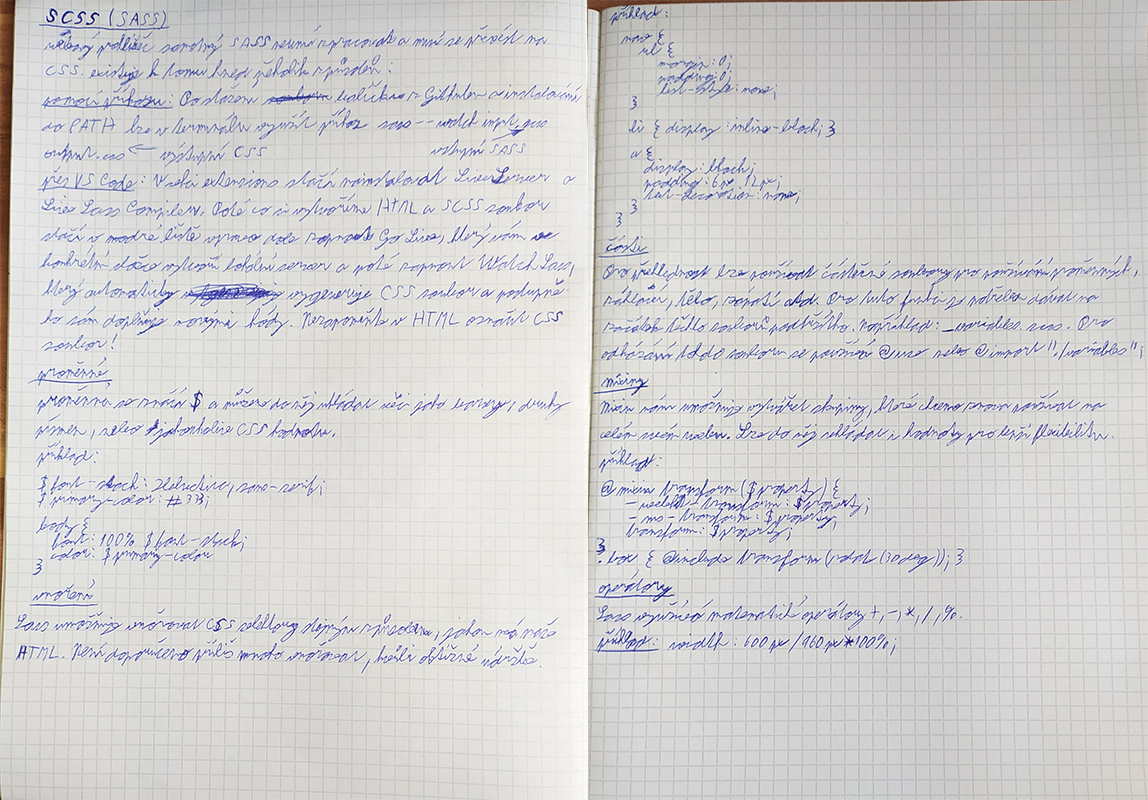 SCSS (SASS)
webový prohlížeč samotný SASS neumí zpracovat a musí se převést na
CSS. existuje k tomu hned několik způsobů:
pomocí příkazu: Po stažení balíčku z GitHubu a instalování
do PATH lze v terminálu využít příkaz sass --watch input.scss
output.css ← výstupní CSS vstupní SASS
přes VS Code: V sekci extensions stačí nainstalovat Live Server a
Live Sass Compiler. Poté co si vytvoříme HTML a SCSS soubor
stačí v modré liště vpravo dole zapnout Go Live, který vám
konkrétní vytvoří lokální server a poté zapnout Watch Sass,
který automaticky vygeneruje CSS soubor a postupně
ho sám doplňuje novými kódy. Nezapomeňte v HTML označit CSS
soubor!
proměnné
proměnná se značí $ a můžeme do něj ukládat věci jako barvy, druhy
písmen, nebo jakoukoliv CSS hodnotu.
příklad:
$ font-stack: Helvetica, sans-serif;
$ primary-color: #333;
body {
font: 100% $ font-stack;
color: $ primary-color
}
vnoření
Sass umožňuje vnořovat CSS selektory stejným způsobem, jakou má naše
HTML. Není doporučeno příliš mnoho vnořovat, kvůli obtížné údržbě.
příklad:
nav {
ul {
margin: 0;
padding: 0;
list-style: none;
}
li { display: inline-block; }
a {
display: block;
padding: 6px 12px;
text-decoration: none;
}
}
části
Pro přehlednost lze používat částečné soubory pro používání proměnných,
záhlaví, tělo, zápatí atd. Pro tuto funkci je potřeba dávat na
začátek těchto souborů podtržítko. Například: _variables.scss. Pro
odkázání tohoto souboru se používá @use nebo @import "./variables";
mixiny
Mixin nám umožňuje vytvářet skupiny, které chceme znova používat na
celém svém webu. Lze do něj vkládat i hodnoty pro lepší flexibilitu.
příklad:
@mixin transform ($ property) {
-webkit-transform: $ property;
-ms-transform: $ property;
transform: $ property;
}
.box { @include transform (rotate (30deg)); }
operátory
Sass využívá matematické operátory +, -, *, /, %.
příklad: width: 600 px / 960 px * 100%;